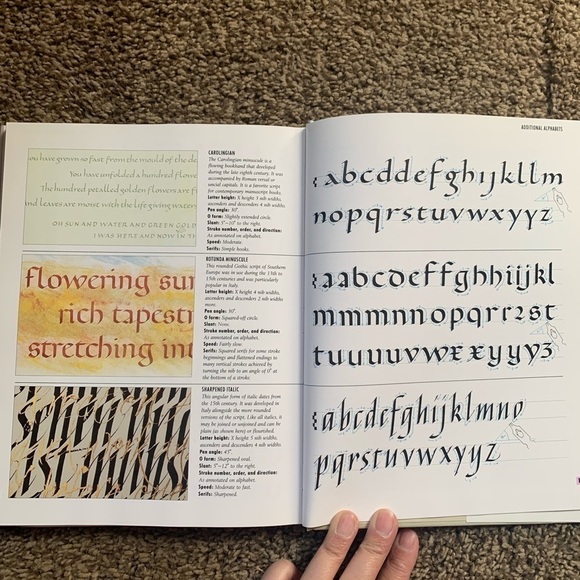 you have grown so fast from the mould of the de
You have unfolded a hundred flowe
The hundred petalled golden flowers are f
and leaves are moist with the life giving water
OH SUN AND WATER AND GREEN GOLD
I WAS HERE AND NOW IN TH
flowering sun
rich tapestr
stretching int
CAROLINGIAN
The Carolingian minuscule is a
flowing bookhand that developed
during the late eighth century. It was
accompanied by Roman versal or
uncial capitals. It is a favorite script
for contemporary manuscript books.
Letter height: X height 3 nib widths,
ascenders and descenders 4 nib widths.
Pen angle: 30°
O form: Slightly extended circle.
Slant: 5°–10° to the right.
Stroke number, order, and direction:
As annotated on alphabet.
Speed: Moderate
Serifs: Simple hooks.
ROTUNDA MINUSCULE
This rounded Gothic script of Southern
Europe was in use during the 13th to
15th centuries and was particularly
popular in Italy.
Letter height: X height 4 nib widths,
ascenders and descenders 2 nib widths
more.
Pen angle: 30°.
O form: Squared-off circle.
Slant: None.
Stroke number, order, and direction:
As annotated on alphabet.
Speed: Fairly slow.
Serifs: Squared serifs for some stroke
beginnings and flattened endings to
many vertical strokes achieved by
turning the nib to an angle of 0° at
the bottom of a stroke.
SHARPENED ITALIC
This angular form of italic dates from
the 15th century. It was developed in
Italy alongside the more rounded
versions of the script. Like all italics, it
may be joined or unjoined and can be
plain (as shown here) or flourished.
Letter height: X height 5 nib widths,
ascenders and descenders 4 nib widths.
Pen angle: 45°.
O form: Sharpened oval.
Slant: 5°–12° to the right.
Stroke number, order, and direction:
As annotated on alphabet.
Speed: Moderate to fast.
Serifs: Sharpened.
ADDITIONAL ALPHABETS
abcddefghijkllm
nopqrstuvwxyyz
aabcdeffghhiijkl
mmmnnopqrr2st
tuuuvvwxxyyyz3
abcdefghijklmno
pqrstuvwxyyz